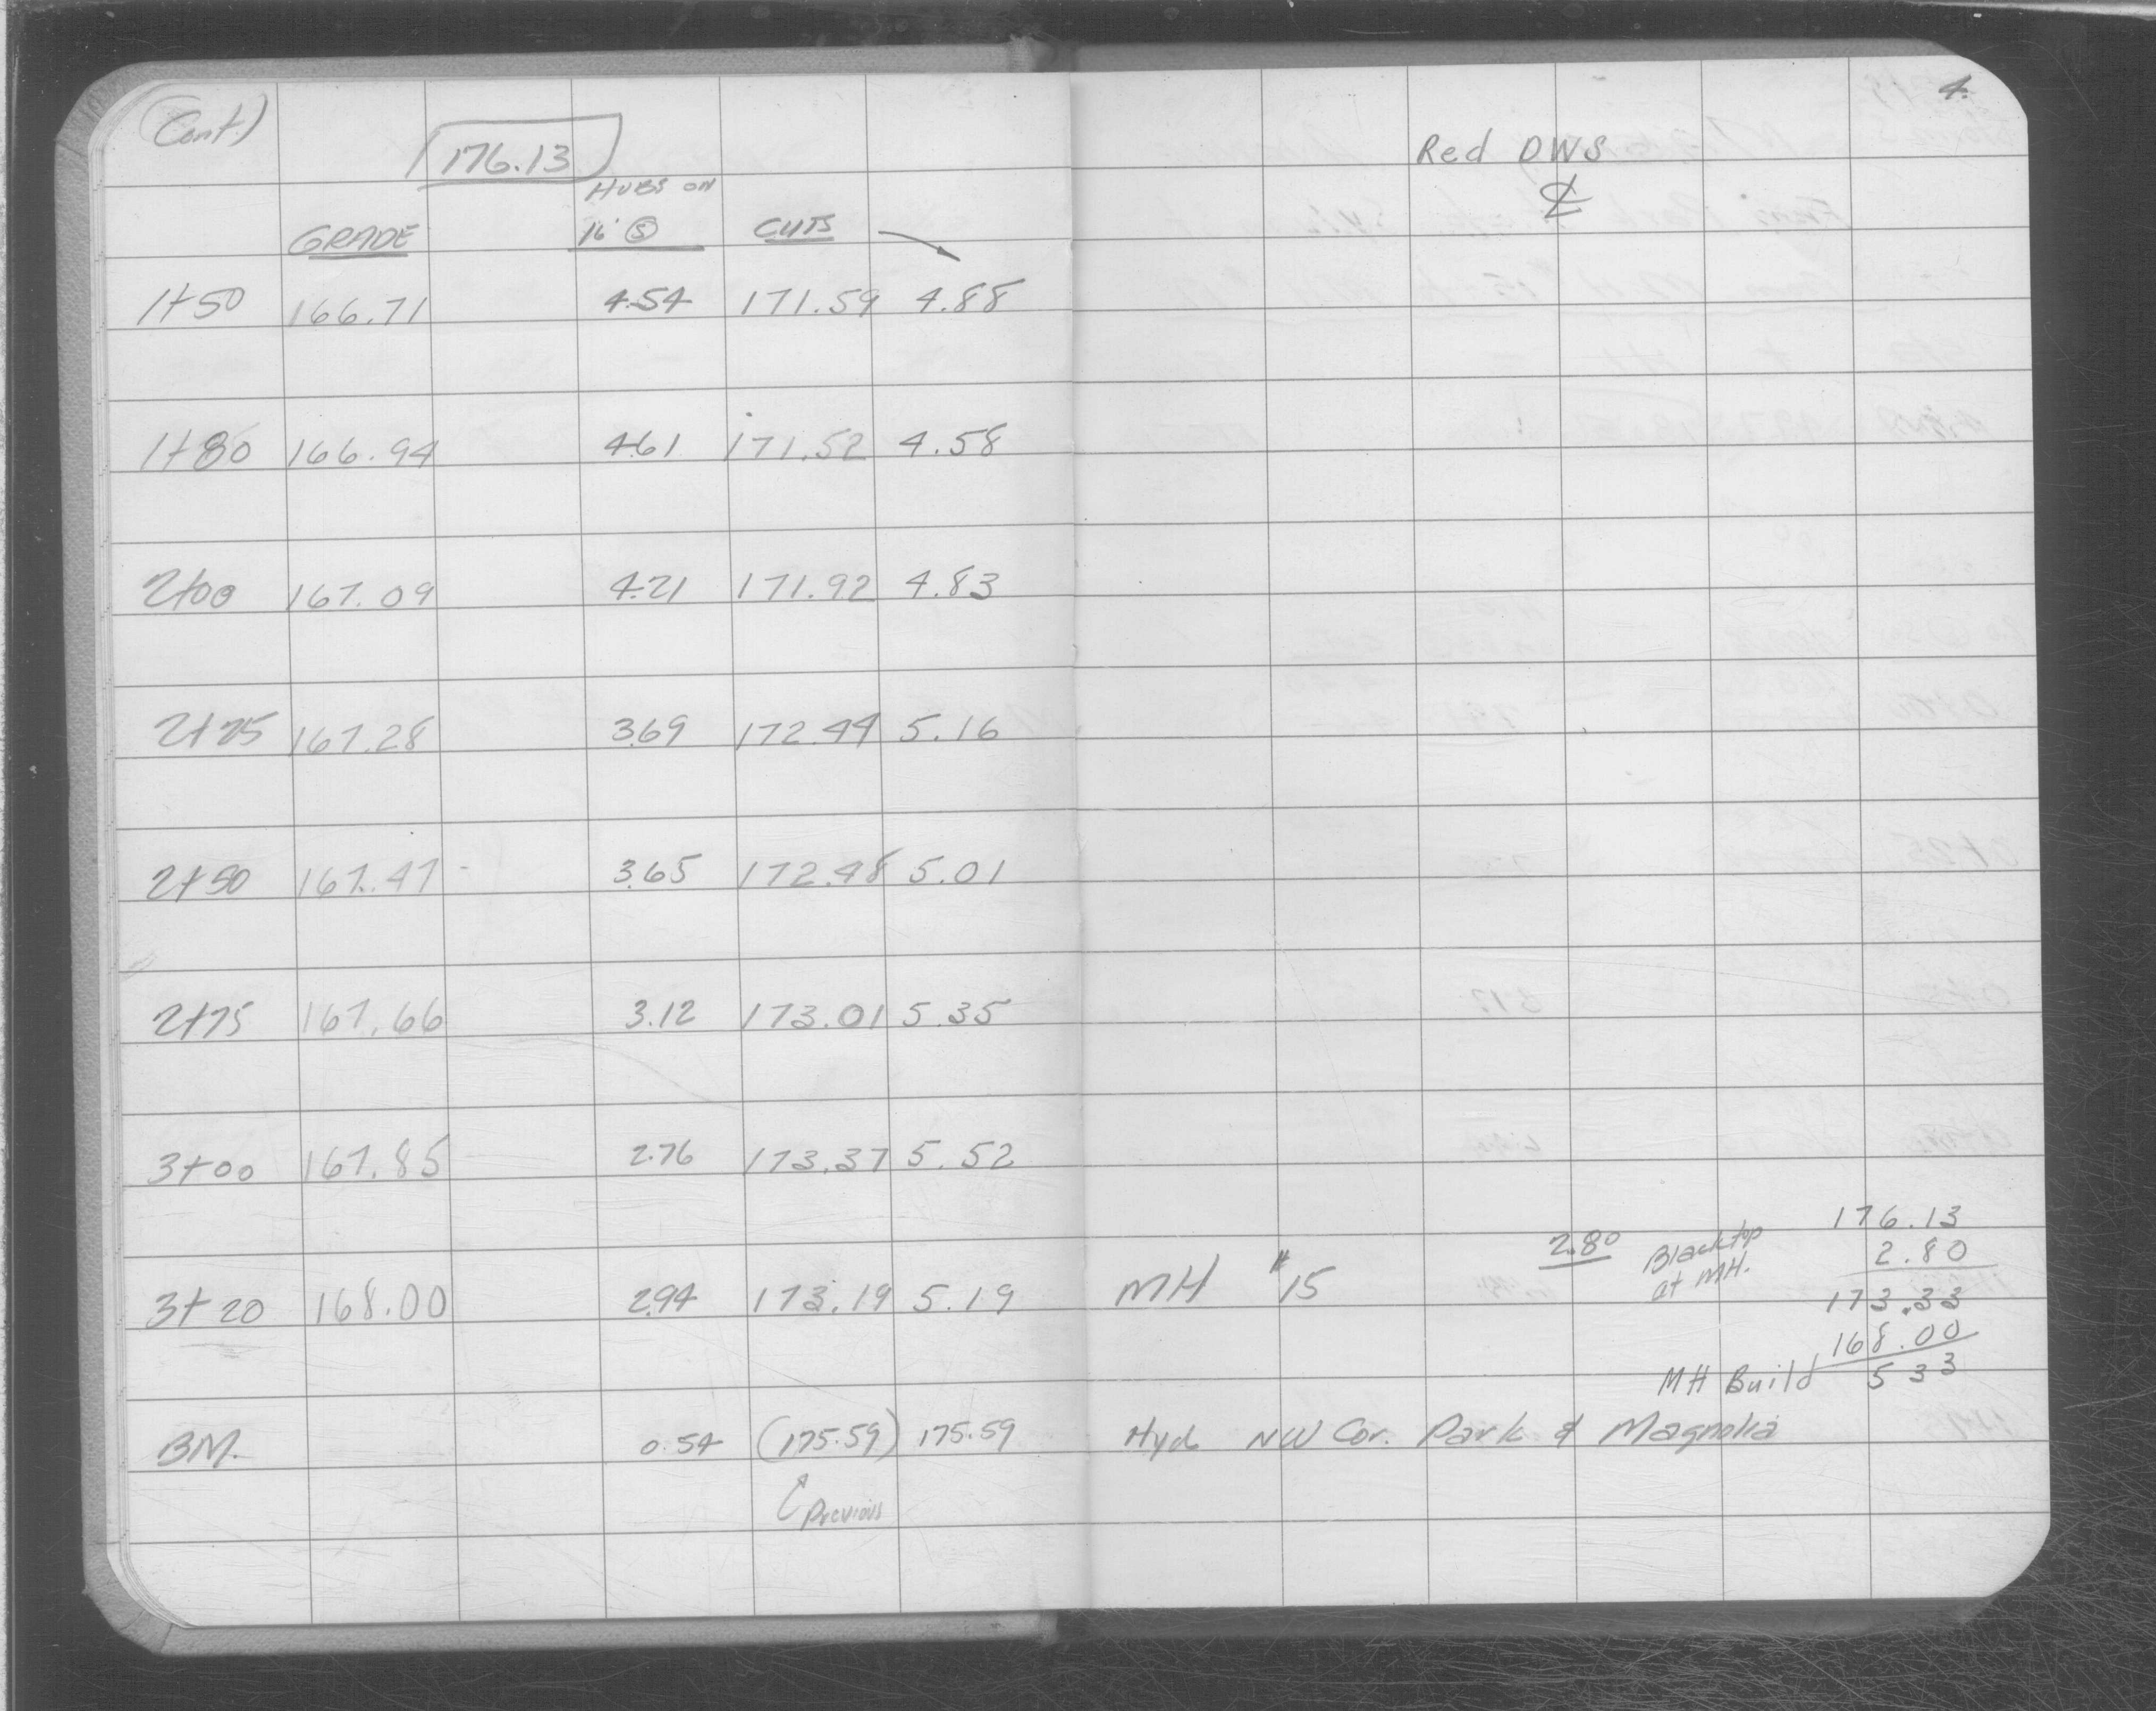 (Cont.)
176.13
HUBS ON
GRADE 16' Ⓢ CUTS
1+50 166.71 4.54 171.59 4.88
1+80 166.94 4.61 171.52 4.58
2+00 167.09 4.21 171.92 4.83
2+25 167.28 3.69 172.44 5.16
2+50 167.47 3.65 172.48 5.01
2+75 167.66 3.12 173.01 5.35
3+00 167.85 2.76 173.37 5.52
3+20 168.00 2.94 173.19 5.19
BM. 0.54 (175.59) 175.59
Previous
4.
Red DWS
℄
MH #15 2.80 Blacktop
at MH.
176.13
2.80
173.33
168.00
MH Build 5 33
Hyd NW Cor. Park & Magnolia